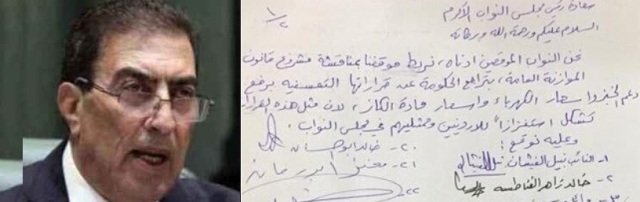 ١/٢
سعادة رئيس مجلس النواب الأكرم
السلام عليكم ورحمة الله وبركاته
نحن النواب الموقعين ادناه، نربط موقفنا بمناقشة مشروع قانون
الموازنة العامة، بتراجع الحكومة عن قراراتها التعسفية برفع
دعم الخبز واسعار الكهرباء واسعار مادة الكاز، لان مثل هذه القرارات
تشكل استفزازاً للاردنيين وممثليهم في مجلس النواب.
وعليه نوقع:
٢٠- خالد ابو حسان
١- النائب نبيل الغيشان
٢١- معتز ابو رمان
٢- خالد زاهر الفناطسة
٢٢-